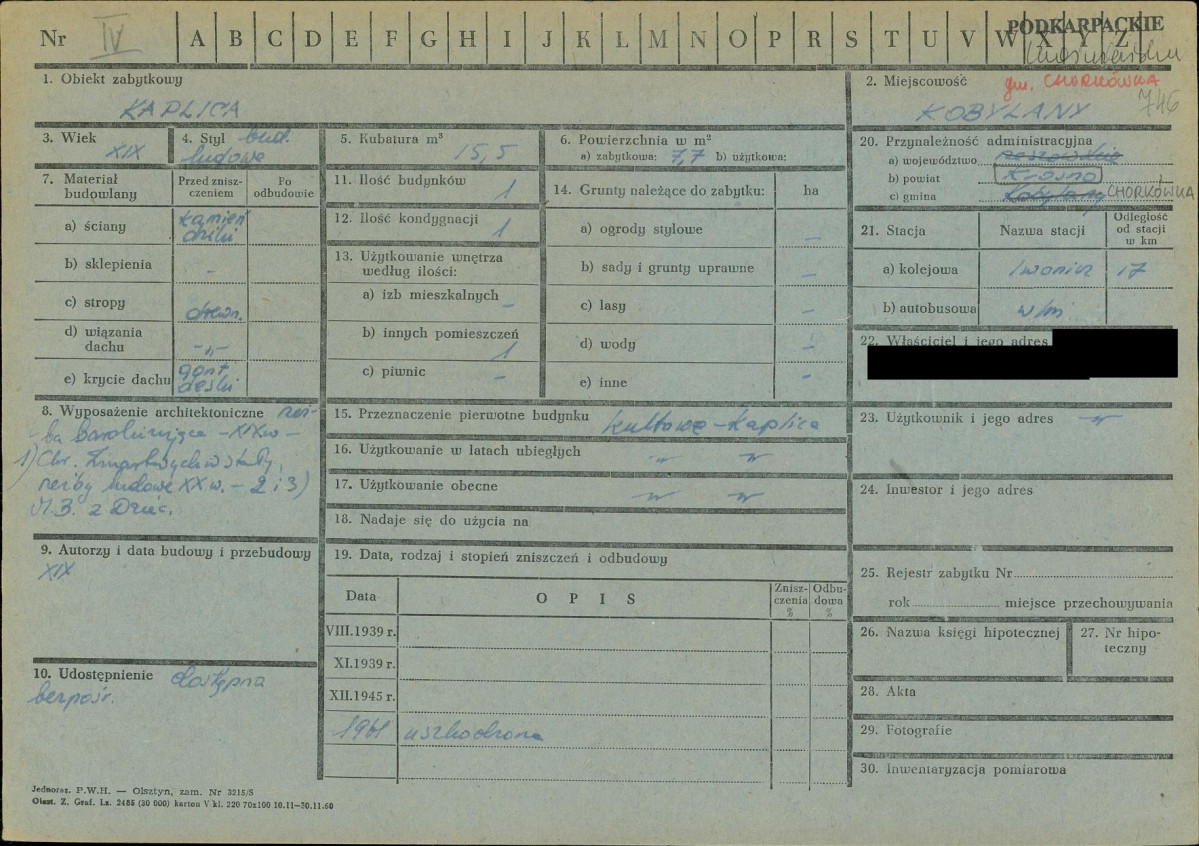 Nr IV A B C D E F G H I J K L M N O P R S T U V W X Y Z
PODKARPACKIE
1. Obiekt zabytkowy
KAPLICA
2. Miejscowość gm. CHORKÓWKA
KOBYLANY 746
3. Wiek
XIX
4. Styl bud.
ludowe
5. Kubatura m³
15,5
6. Powierzchnia w m²
a) zabytkowa: 7,7 b) użytkowa:
7. Materiał budowlany
Przed zniszczeniem
Po odbudowie
a) ściany kamień dziki
b) sklepienia -
c) stropy drewn.
d) wiązania dachu -„-
e) krycie dachu gont deski
8. Wyposażenie architektoniczne rzeź-
ba barokizująca - XIX w -
1) Chr. Zmartwychwstały,
rzeźby ludowe XX w. - 2 i 3)
M.B. z Dziec.
9. Autorzy i data budowy i przebudowy
XIX
10. Udostępnienie dostępna
bezpośr.
11. Ilość budynków 1
12. Ilość kondygnacji 1
13. Użytkowanie wnętrza według ilości:
a) izb mieszkalnych -
b) innych pomieszczeń 1
c) piwnic -
14. Grunty należące do zabytku: ha
a) ogrody stylowe -
b) sady i grunty uprawne -
c) lasy -
d) wody -
e) inne -
15. Przeznaczenie pierwotne budynku kultowe - kaplica
16. Użytkowanie w latach ubiegłych -„- -„-
17. Użytkowanie obecne -„- -„-
18. Nadaje się do użycia na
19. Data, rodzaj i stopień zniszczeń i odbudowy
Data OPIS Zniszczenia % Odbudowa %
VIII.1939 r.
XI.1939 r.
XII.1945 r.
1961 uszkodzona
20. Przynależność administracyjna
a) województwo rzeszowskie
b) powiat Krosno
c) gmina Kobylany CHORKÓWKA
21. Stacja Nazwa stacji Odległość od stacji w km
a) kolejowa Iwonicz 17
b) autobusowa w/m
22. Właściciel i jego adres
23. Użytkownik i jego adres -„-
24. Inwestor i jego adres
25. Rejestr zabytku Nr
rok miejsce przechowywania
26. Nazwa księgi hipotecznej
27. Nr hipoteczny
28. Akta
29. Fotografie
30. Inwentaryzacja pomiarowa
Jednoraz. P.W.H. — Olsztyn, zam. Nr 3215/S
Olszt. Z. Graf. Lz. 2485 (30 000) karton V kl. 220 70x100 10.11—30.11.60